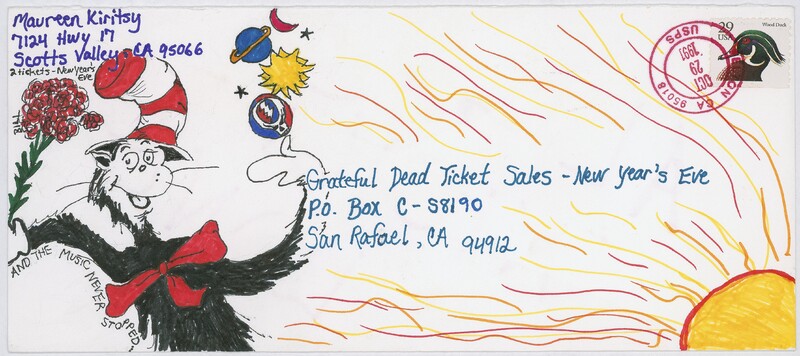 Maureen Kiritsy
7124 Hwy 17
Scotts Valley, CA 95066
2 tickets - New Year's
Eve
Grateful Dead Ticket Sales - New Year's Eve
P.O. Box C-S8190
San Rafael, CA 94912
AND THE MUSIC NEVER STOPPED
29
USA
Wood Duck
CA 95018
OCT
29
1991
USPS